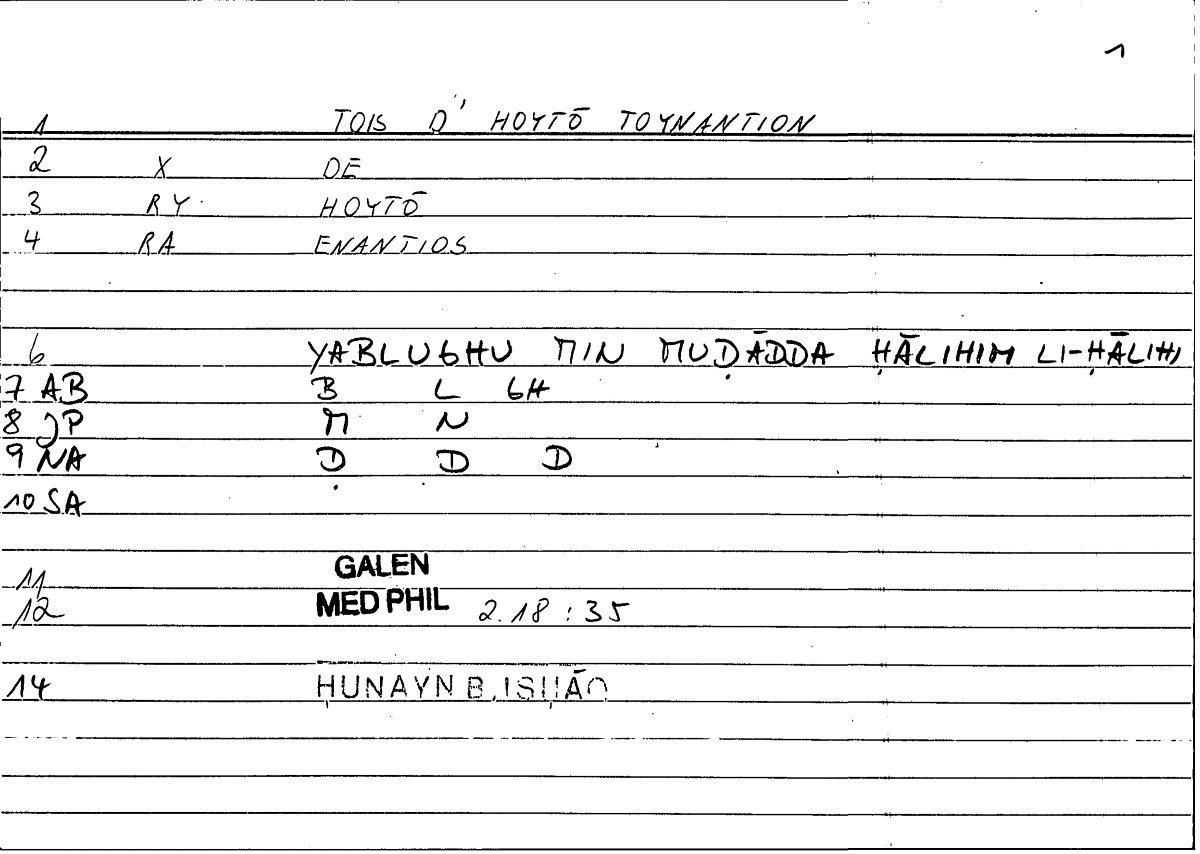 1
1 TOIS D' HOYTŌ TOYNANTION
2 X DE
3 RY HOYTŌ
4 RA ENANTIOS
6 YABLUGHU MIN MUḌĀDDA ḤĀLIHIM LI-ḤĀLIHI
7 AB B L GH
8 JP M N
9 NA Ḍ Ḍ D
10 SA
11 GALEN
12 MED PHIL 2.18:35
14 ḤUNAYN B. ISḤĀQ